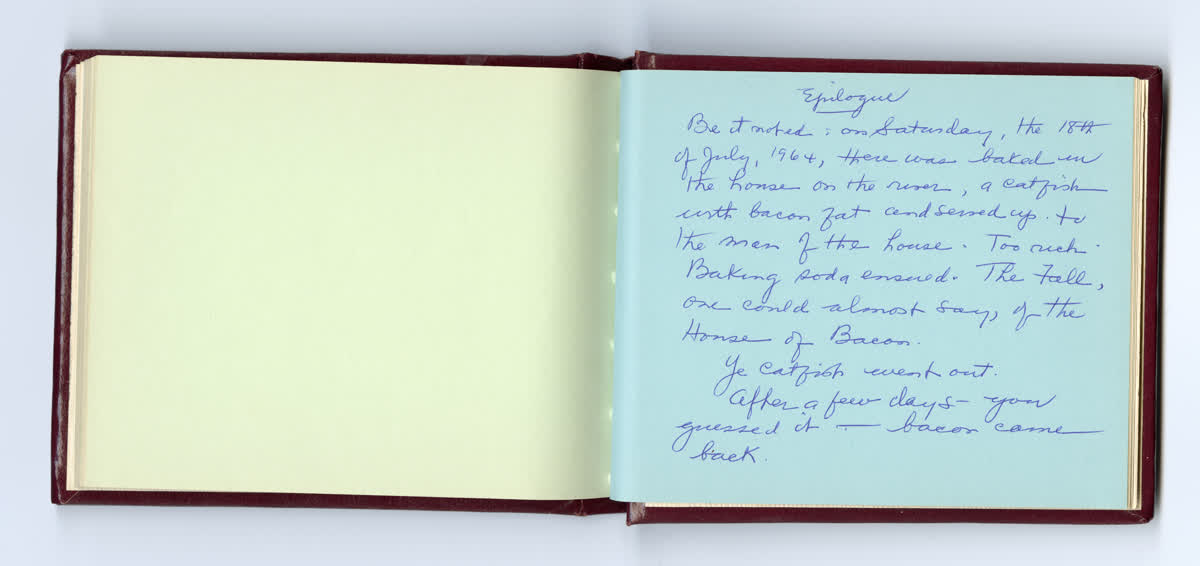 Epilogue
Be it noted: on Saturday, the 18th
of July, 1964, there was baked in
the house on the river, a catfish
with bacon fat and served up to
the man of the house. Too rich.
Baking soda ensued. The Fall,
one could almost say, of the
House of Bacon.
Ye catfish went out.
After a few days — you
guessed it — bacon came
back.